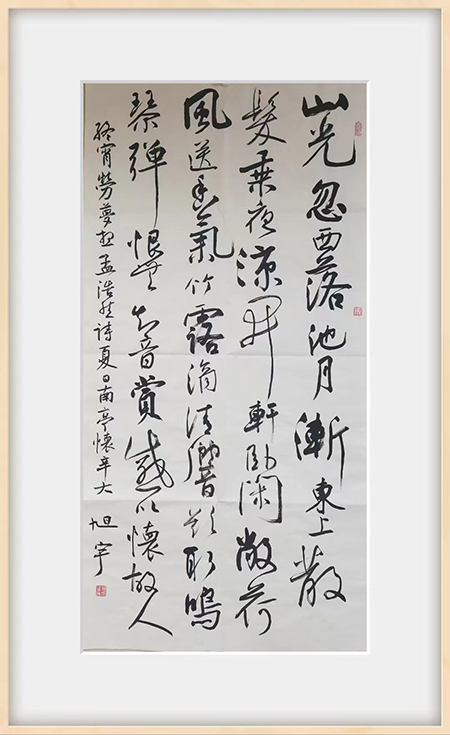 山光忽西落池月漸東上散
髮乘夜涼開軒卧閑敞荷
風送香氣竹露滴清響欲取鳴
琴彈恨無知音賞感以懷故人
終宵勞夢想孟浩然詩夏日南亭懷辛大
旭宇